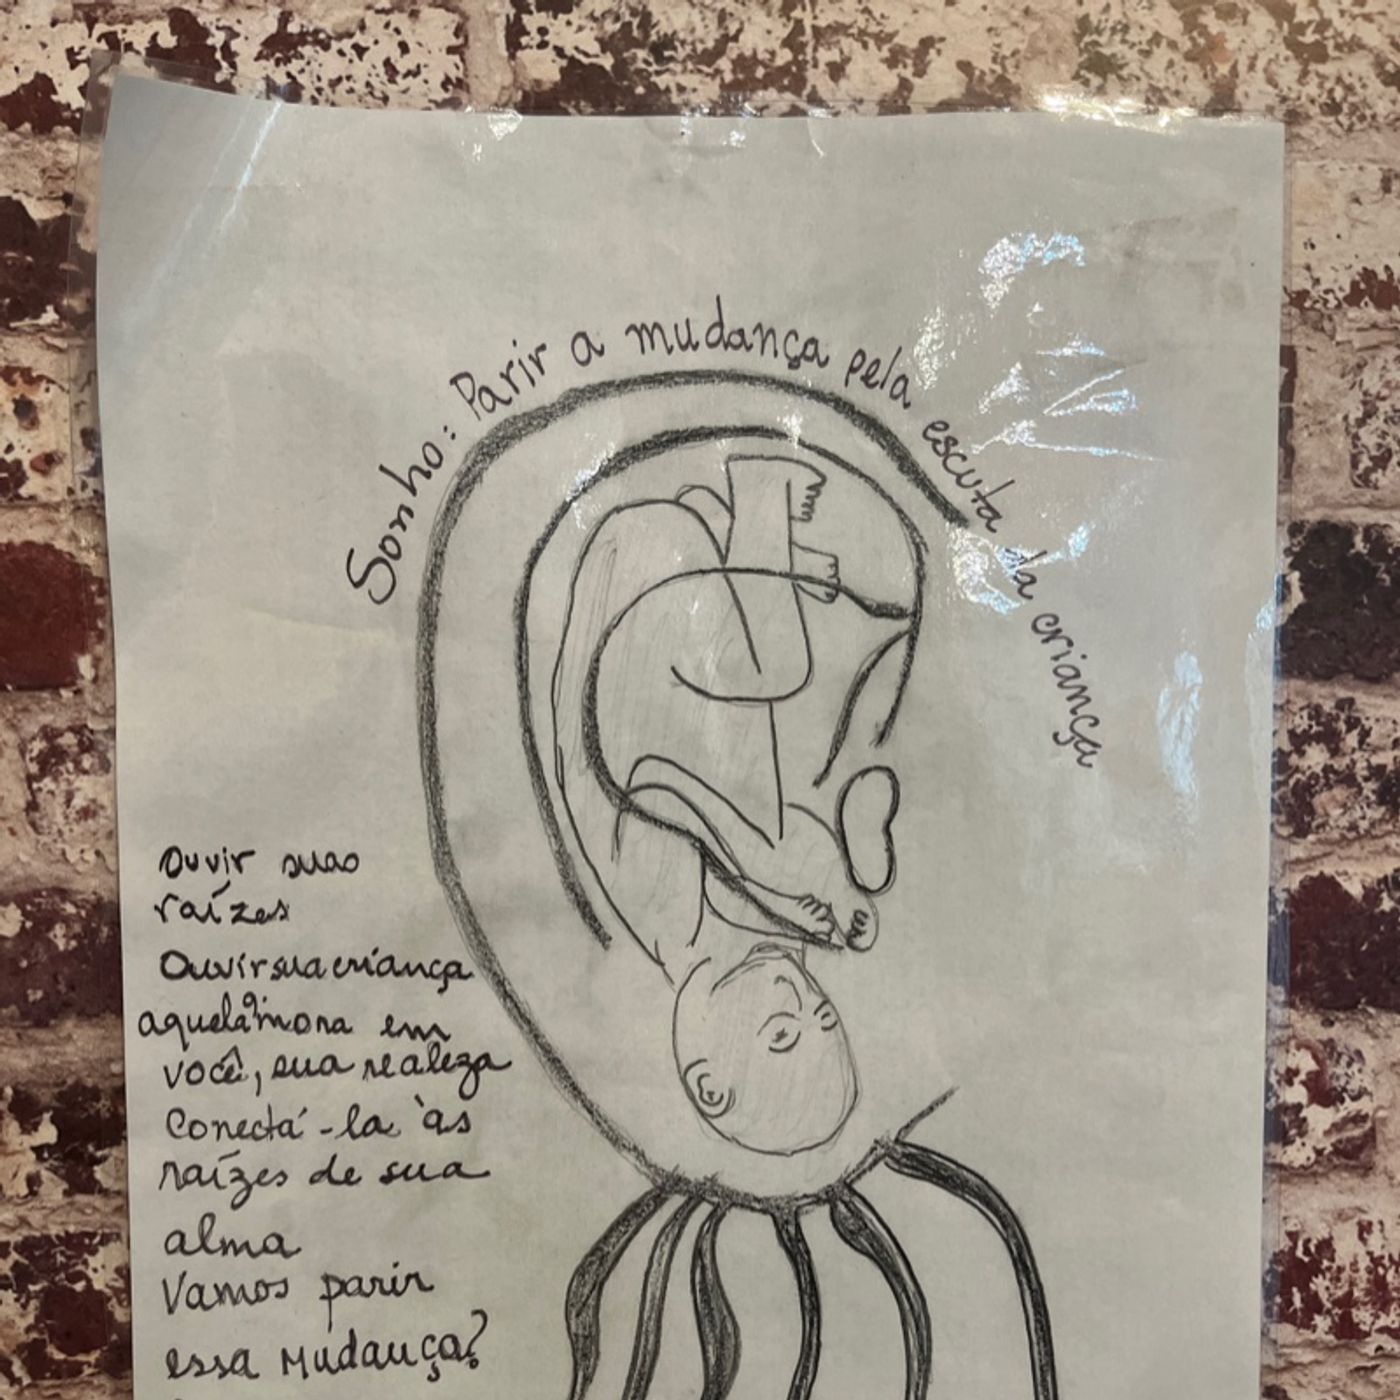 Sonho: Parir a mudança pela escuta da criança
Ouvir suas
raízes
Ouvir sua criança
aquela q mora em
você, sua realeza
Conectá-la às
raízes de sua
alma
Vamos parir
essa mudança?